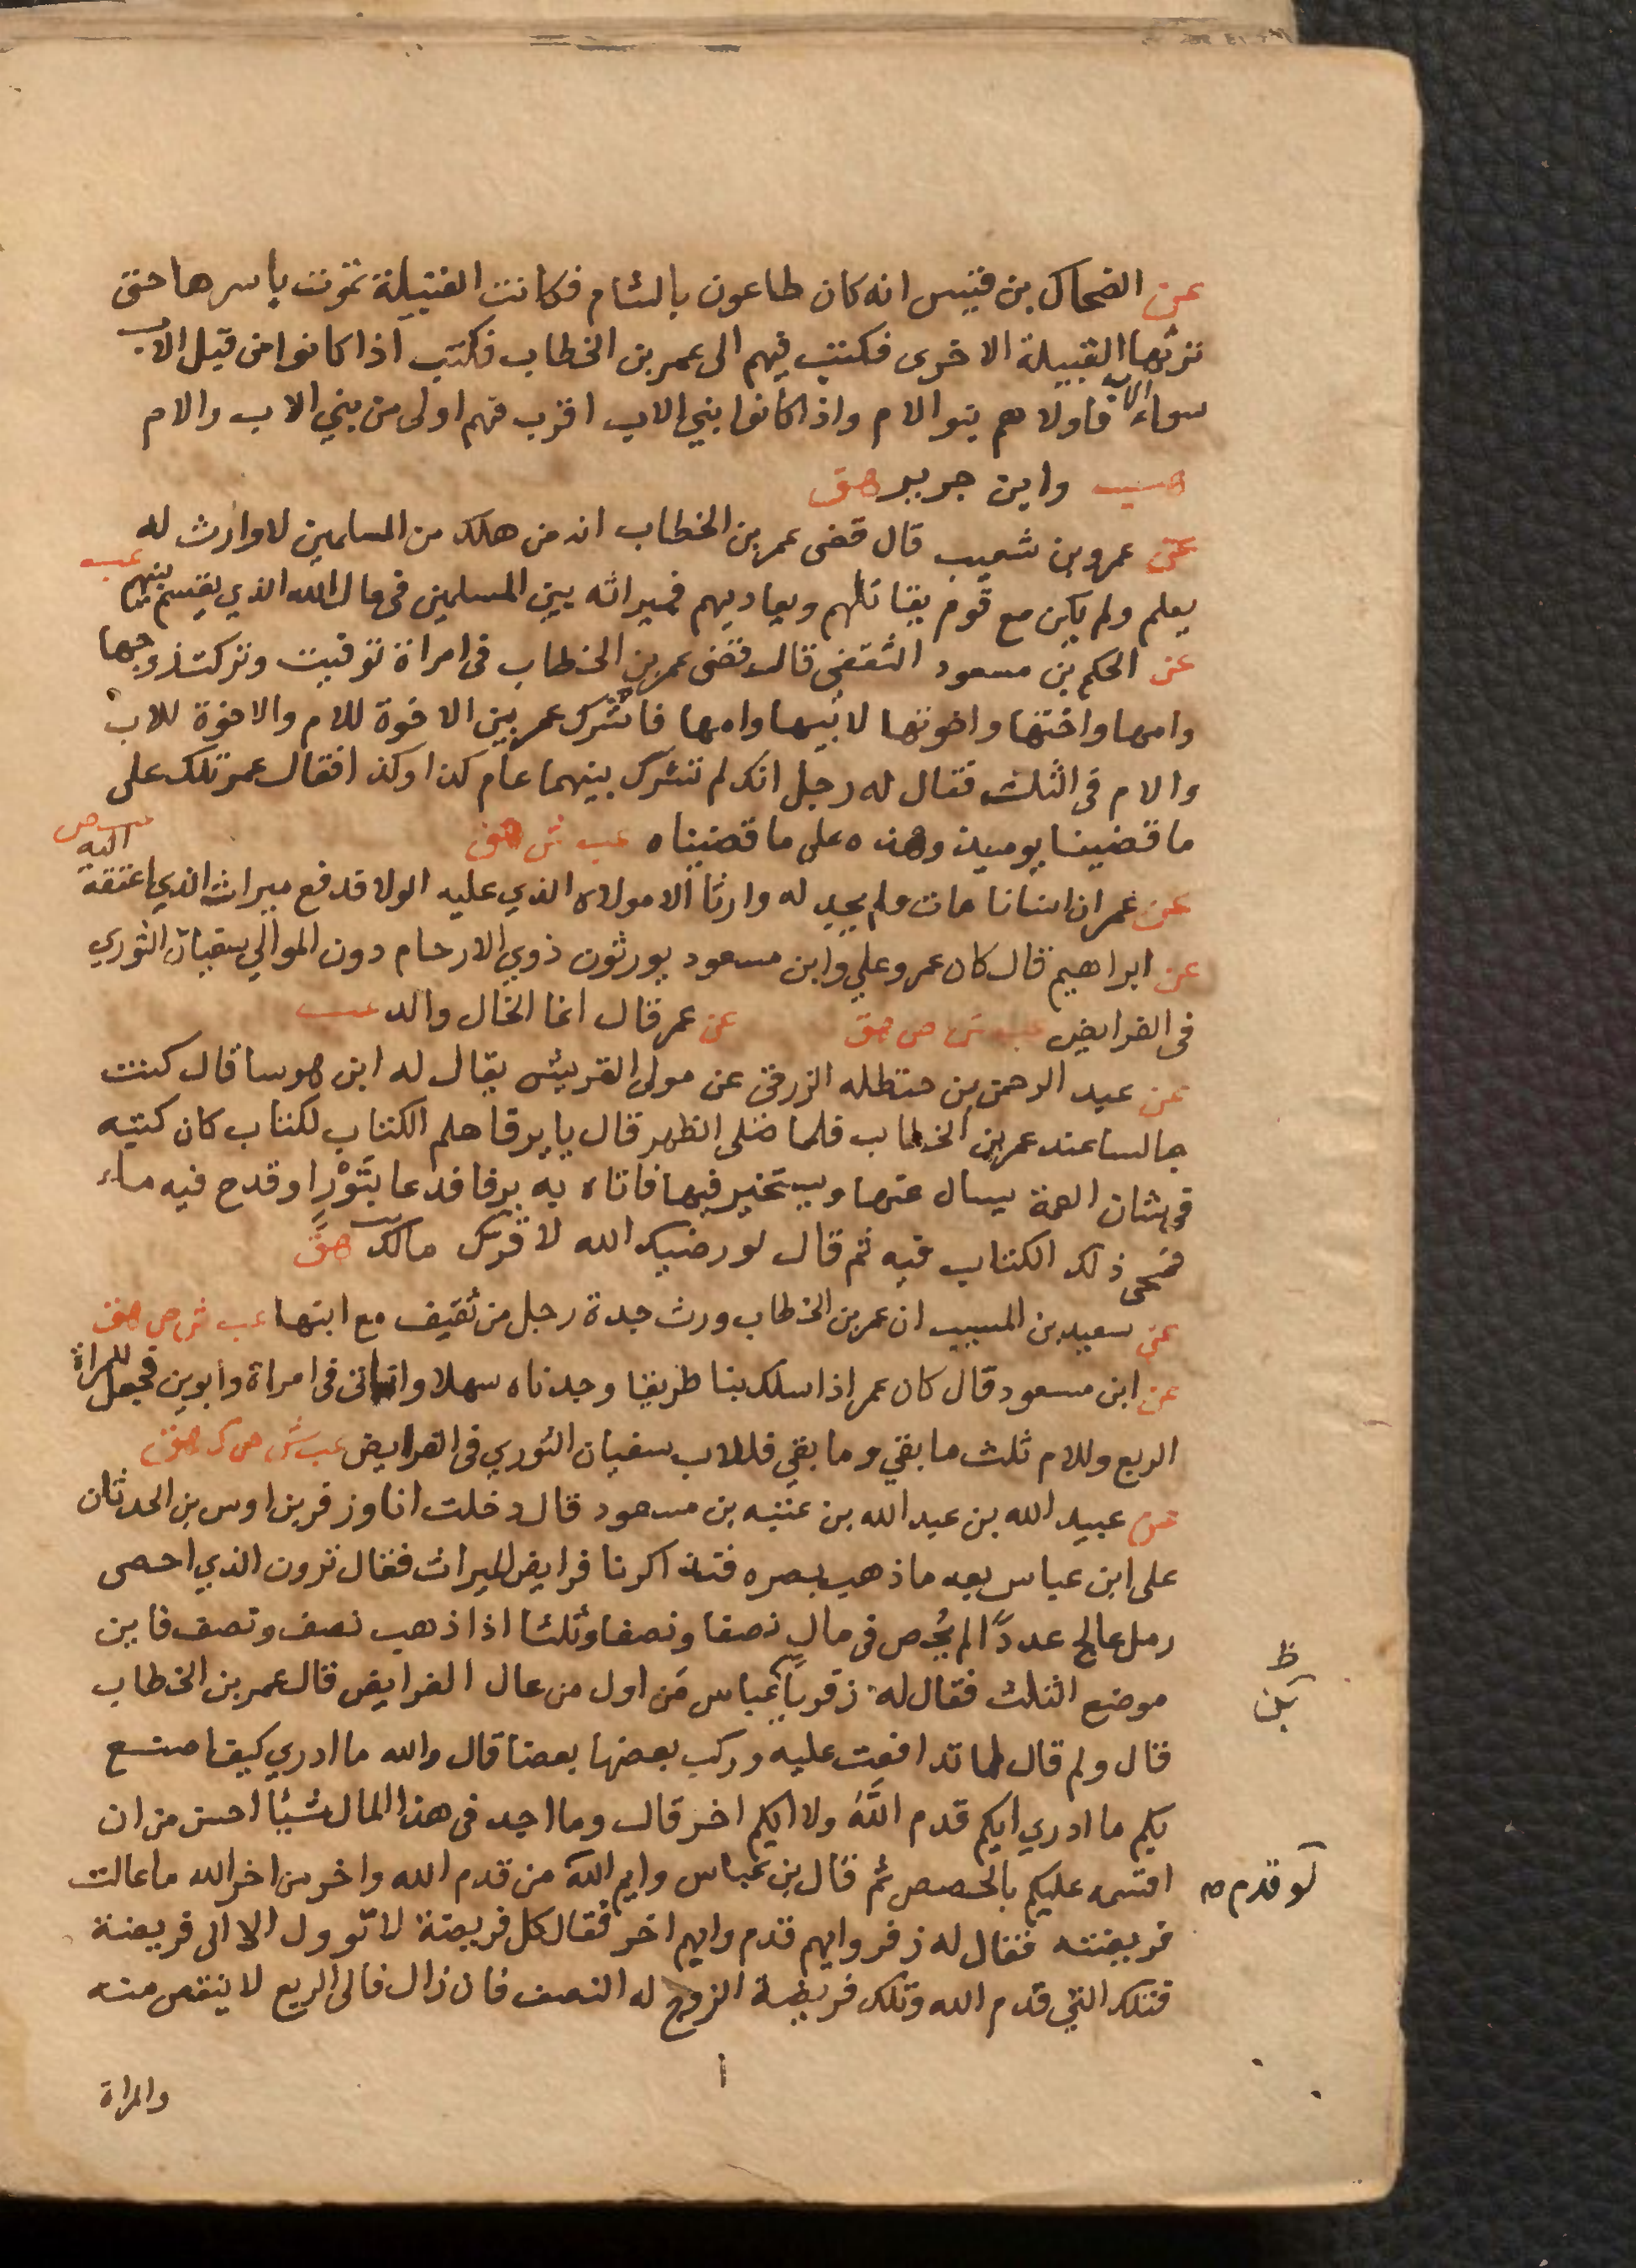 عن الضحاك بن قيس انه كان طاعون بالشام فكانت القبيلة تموت باسرها حتى
ترثها القبيلة الاخرى فكتب فيهم الى عمر بن الخطاب فكتب اذا كانوا من قبل الاب
سواء فاولاهم بنو الام واذا كانوا بني الاب اقرب فهم اولى من بني الاب والام
وابن جرير هق
عن عمرو بن شعيب قال قضى عمر بن الخطاب انه من هلك من المسلمين لا وارث له
يعلم ولم يكن مع قوم يقاتلهم ويعاديهم فميراثه بين المسلمين في مال الله الذي يقسم بينهم عب
عن الحكم بن مسعود الثقفى قال قضى عمر بن الخطاب فى امراة توفيت وتركت زوجها
وامها واختها واخوتها لابيها وامها فاشرك عمر بين الاخوة للام والاخوة للاب
والام فى الثلث فقال له رجل انك لم تشرك بينهما عام كذا وكذا فقال عمر تلك على
ما قضينا يوميذ وهذه على ما قضيناه عب ش هق
عن عمر ان انسانا مات ولم يجد له وارثا الا مولاه الذي عليه الولا فدفع ميراث الذي اعتقه اليه ص
عن ابراهيم قال كان عمر وعلي وابن مسعود يورثون ذوي الارحام دون الموالي سفيان الثوري
فى الفرايض عب ش ص هق عن عمر قال انما الخال والد عب
عن عبد الرحمن بن حنظله الزرقى عن مولى القريش يقال له ابن موسا قال كنت
جالسا عند عمر بن الخطاب فلما صلى الظهر قال يا يرفا هلم الكتاب لكتاب كان كتبه
فى شان العمة يسال عنها ويستخير فيها فاتاه به يرفا فدعا بتَوْر او قدح فيه ماء
فمحى ذلك الكتاب فيه ثم قال لو رضيك الله لاقرك مالك هق
عن سعيد بن المسيب ان عمر بن الخطاب ورث جدة رجل من ثقيف مع ابنها عب ش ص هق
عن ابن مسعود قال كان عمر اذا سلك بنا طريقا وجدناه سهلا وانه اتى فى امراة وابوين فجعل للمراة
الربع وللام ثلث ما بقي وما بقي فللاب سفيان الثوري فى الفرايض عب ش ص ك هق
عن عبيد الله بن عبد الله بن عتبه بن مسعود قال دخلت انا وزفر بن اوس بن الحدثان
على ابن عباس بعد ما ذهب بصره فتذاكرنا فرايض الميراث فقال ترون الذي احصى
رمل عالج عددًا لم يُحص فى مال نصفا ونصفا وثلثا اذا ذهب نصف ونصف فاين
موضع الثلث فقال له زفر يا بن عباس مَن اول من عال الفرايض قال عمر بن الخطاب
قال ولم قال لما تدافعت عليه وركب بعضها بعضا قال والله ما ادري كيف اصنع
بكم ما ادري ايكم قدم اللهُ ولا ايكم اخر قال وما اجد فى هذا المال شيئا احسن من ان
اقسمه عليكم بالحصص ثم قال بن عباس وايم الله من قدم الله واخر من اخر الله ما عالت
لو قدم صح
فريضته فقال له زفر وايهم قدم وايهم اخر فقال كل فريضة لا تزول الا الى فريضة
فتلك التي قدم الله وتلك فريضة الزوج له النصف فان زال فالى الربع لا ينقص منه
والمراة